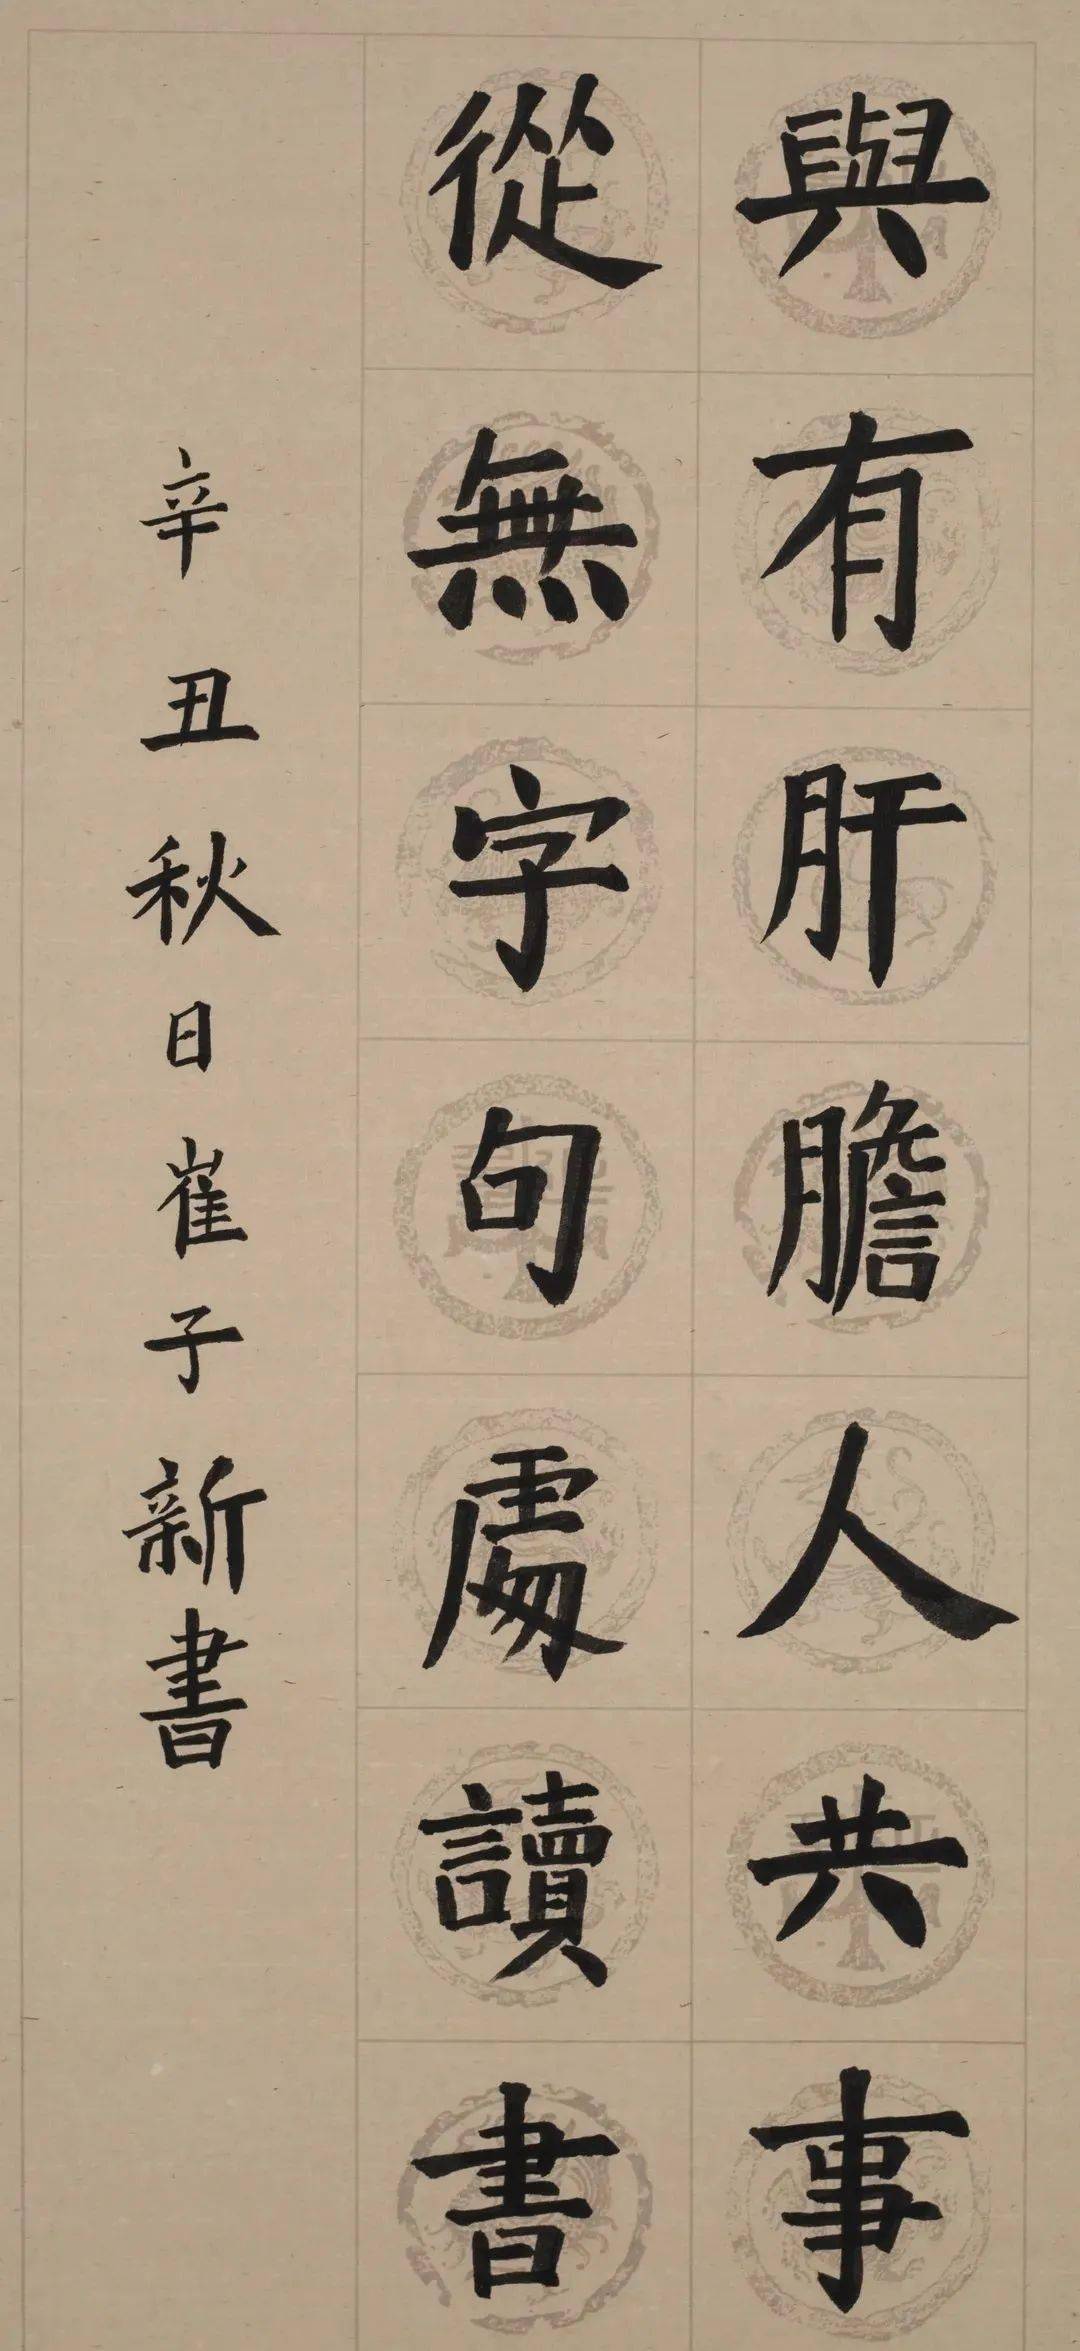 與有肝膽人共事
從無字句處讀書
辛丑秋日崔子新書